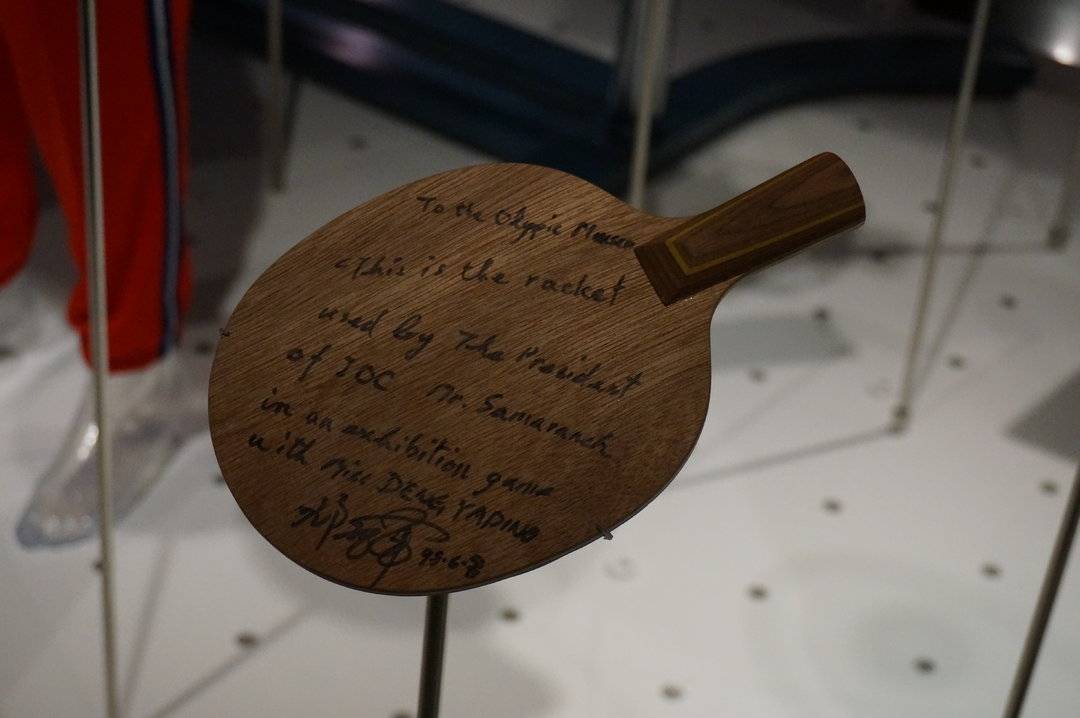 To the Olympic Museum
This is the racket
used by The President
of IOC Mr. Samaranch
in an exhibition game
with Miss DENG YAPING
98.6.